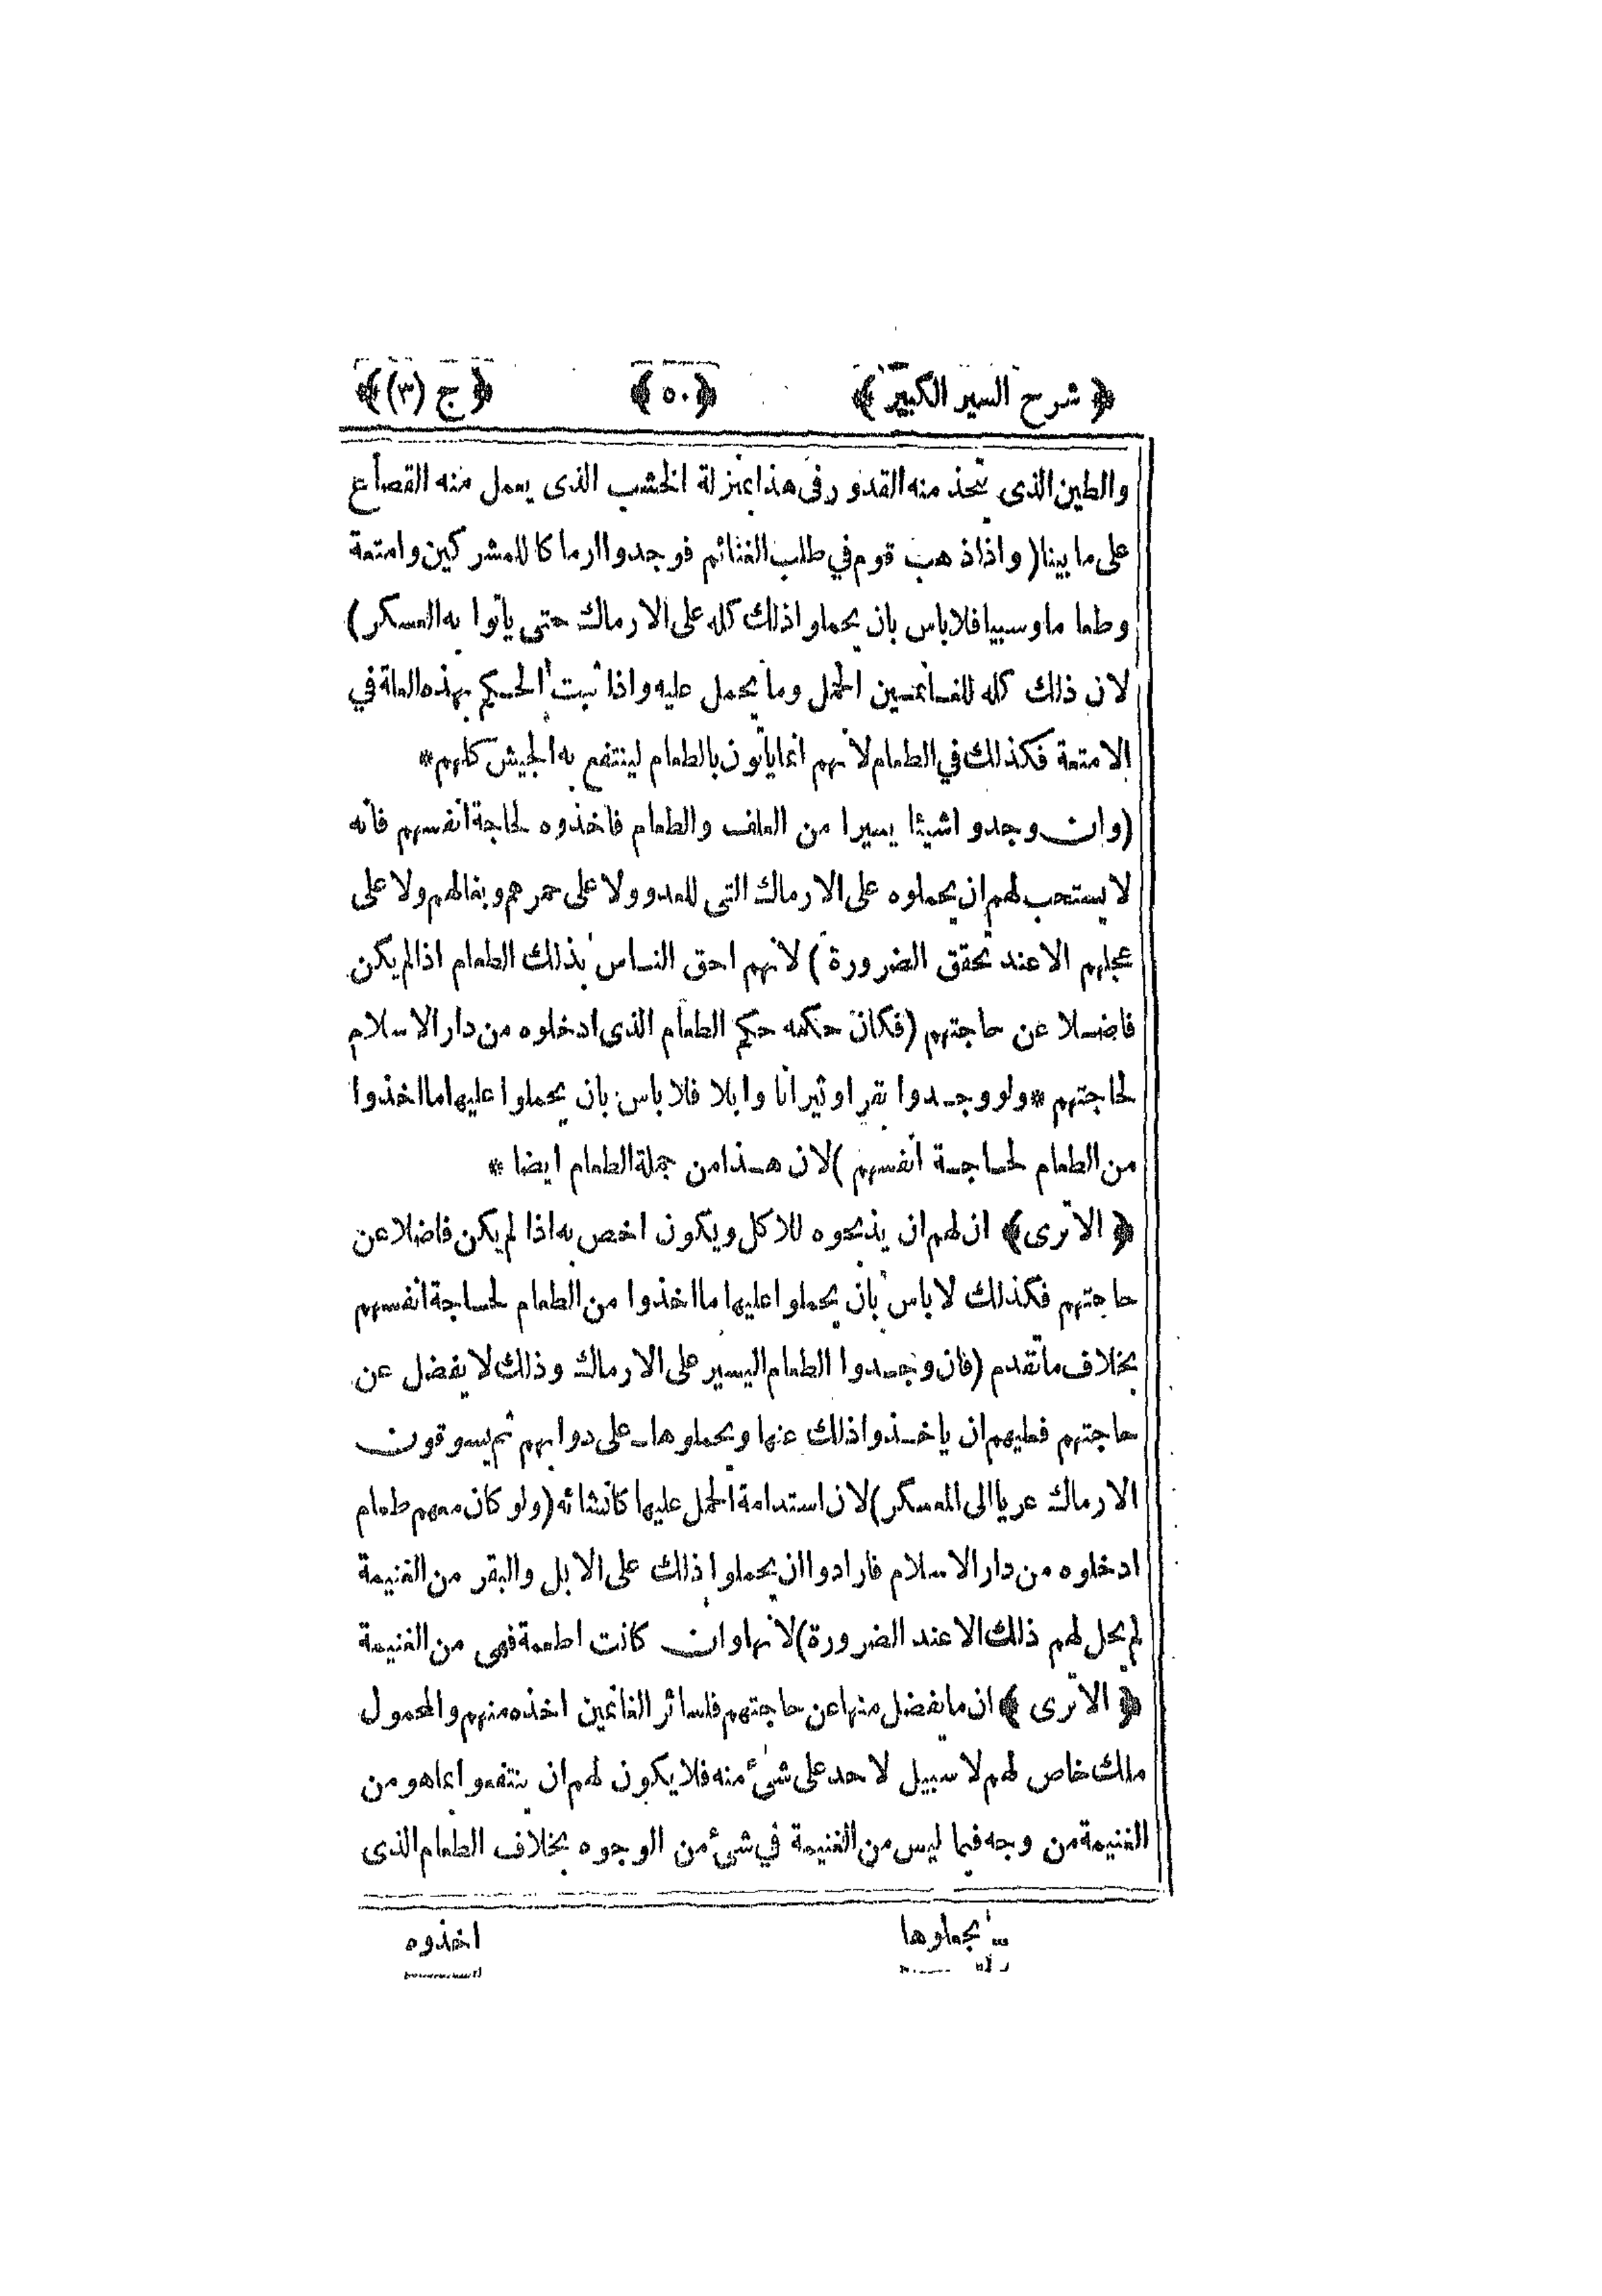 ﴿ شرح السير الكبير ﴾ ﴿٥٠﴾ ﴿ ج (٣) ﴾
والطين الذى تتخذ منه القدور فى هذا بمنزلة الخشب الذى يعمل منه القصاع
على ما بينا (واذا ذهب قوم في طلب الغنائم فوجدوا ارماكا للمشركين وامتعة
وطعاما وسبيا فلا باس بان يحملوا ذلك كله على الارماك حتى يأتوا به العسكر)
لان ذلك كله للغانمين الحمل وما يحمل عليه واذا ثبت الحكم بهذه العلة في
الامتعة فكذلك في الطعام لانهم انما يأتون بالطعام لينتفع به الجيش كلهم*
(وان وجدوا شيئا يسيرا من العلف والطعام فاخذوه لحاجة انفسهم فانه
لا يستحب لهم ان يحملوه على الارماك التى للعدو ولا على حمرهم وبغالهم ولا على
عجلهم الا عند تحقق الضرورة) لانهم احق الناس بذلك الطعام اذا لم يكن
فاضلا عن حاجتهم (فكان حكمه حكم الطعام الذى ادخلوه من دار الاسلام
لحاجتهم * ولو وجدوا بقرا وثيرانا وابلا فلا باس بان يحملوا عليها ما اخذوا
من الطعام لحاجة انفسهم) لان هذا من جملة الطعام ايضا *
﴿ الا ترى ﴾ ان لهم ان يذبحوه للاكل ويكون اخص به اذا لم يكن فاضلا عن
حاجتهم فكذلك لا باس بان يحملوا عليها ما اخذوا من الطعام لحاجة انفسهم
بخلاف ما تقدم (فان وجدوا الطعام اليسير على الارماك وذلك لا يفضل عن
حاجتهم فعليهم ان ياخذوا ذلك عنها ويحملوها على دوابهم ثم يسوقون
الارماك عريا الى المعسكر) لان استدامة الحمل عليها كانشائه (ولو كان معهم طعام
ادخلوه من دار الاسلام فارادوا ان يحملوا ذلك على الابل والبقر من الغنيمة
لم يحل لهم ذلك الا عند الضرورة) لانها وان كانت اطعمة فهى من الغنيمة
﴿ الا ترى ﴾ ان ما يفضل منها عن حاجتهم فلسائر الغانمين اخذه منهم والمحمول
ملك خاص لهم لا سبيل لاحد على شئ منه فلا يكون لهم ان ينتفعوا بما هو من
الغنيمة من وجه فيما ليس من الغنيمة في شئ من الوجوه بخلاف الطعام الذى
يجملوها اخذوه